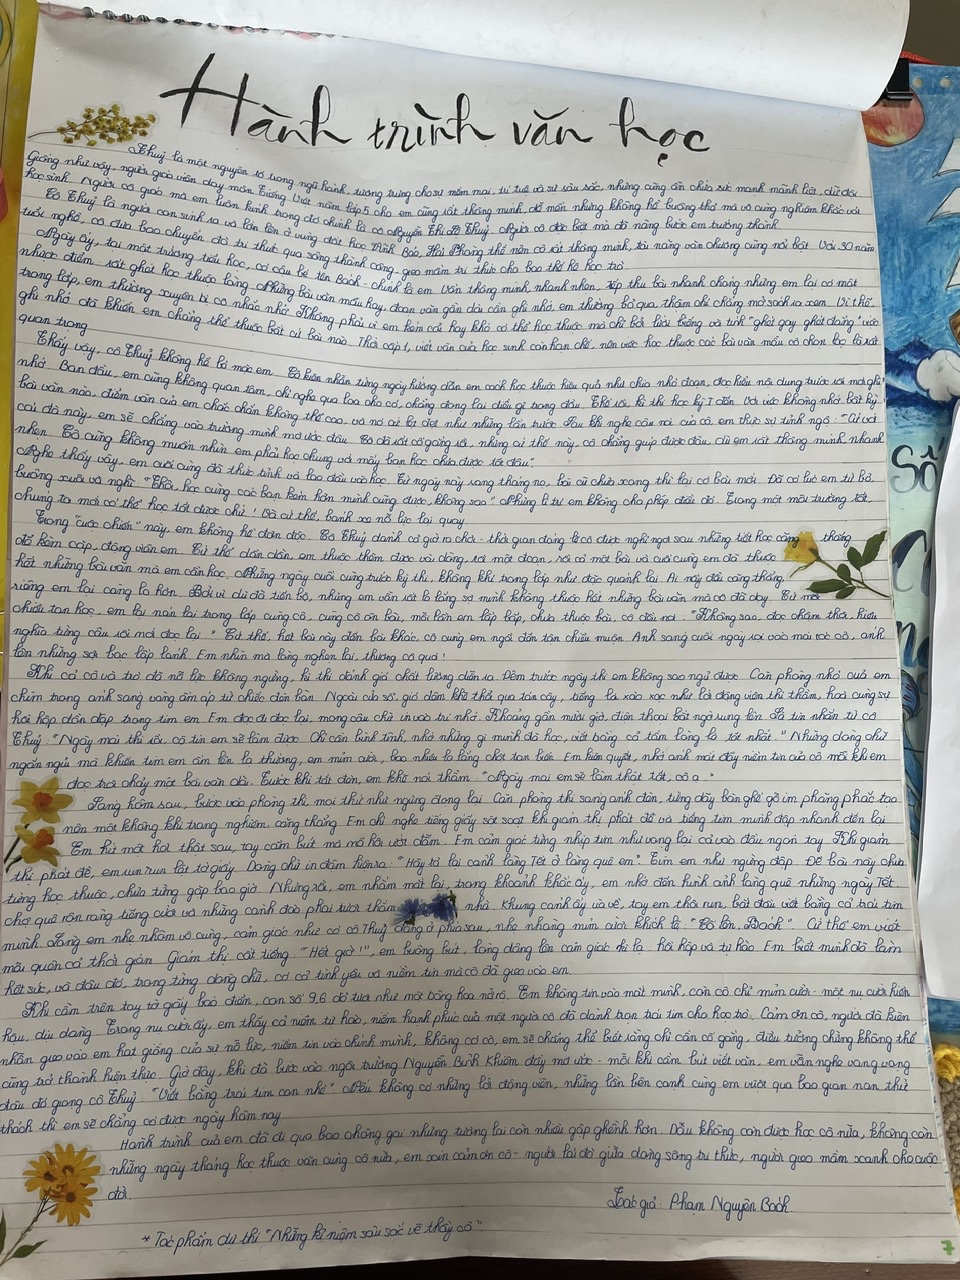 Hành trình văn học
Thuỷ là một nguyên tố trong ngũ hành, tượng trưng cho sự mềm mại, trí tuệ và sự sâu sắc, nhưng cũng ẩn chứa sức mạnh mãnh liệt, dữ dội.
Giống như vậy, người giáo viên dạy môn Tiếng Việt năm lớp 5 cho em cũng rất thông minh, dễ mến nhưng không hề buông thả mà vô cùng nghiêm khắc với
học sinh. Người cô giáo mà em luôn kính trọng đó chính là cô Nguyễn Thị Thuỷ. Người cô đặc biệt mà đã nâng bước em trưởng thành.
Cô Thuỷ là người con sinh ra và lớn lên ở vùng đất học Vĩnh Bảo, Hải Phòng thế nên cô rất thông minh, tài năng văn chương cũng nổi bật. Với 30 năm
tuổi nghề, cô đưa bao chuyến đò tri thức qua sông thành công, gieo mầm tri thức cho bao thế hệ học trò.
Ngày ấy, tại một trường tiểu học, có cậu bé tên Bách - chính là em. Vốn thông minh, nhanh nhẹn, tiếp thu bài nhanh chóng nhưng em lại có một
nhược điểm: rất ghét học thuộc lòng. Những bài văn mẫu hay, đoạn văn gần dài cần ghi nhớ, em thường bỏ qua, thậm chí chẳng mở sách ra xem. Vì thế,
trong lớp, em thường xuyên bị cô nhắc nhở. Không phải vì em kém cỏi hay khó có thể học thuộc mà chỉ bởi lười biếng và tính "ghét cay ghét đắng" việc
ghi nhớ đã khiến em chẳng thể thuộc bất cứ bài nào. Thời cấp 1, viết văn của học sinh còn hạn chế, nên việc học thuộc các bài văn mẫu có chọn lọc là rất
quan trọng.
Thấy vậy, cô Thuỷ không hề la mắc em. Cô kiên nhẫn từng ngày hướng dẫn em cách học thuộc hiệu quả như chia nhỏ đoạn, đọc hiểu nội dung trước rồi mới ghi
nhớ. Ban đầu, em cũng không quan tâm, chỉ nghe qua loa cho có, chẳng đọng lại điều gì trong đầu. Thế rồi, kì thi học kỳ I đến. Với việc không nhớ bất kỳ
bài văn nào, điểm văn của em chắc chắn không thể cao, và nó cứ lẹt đẹt như những lần trước. Sau khi nghe câu nói của cô, em thực sự tỉnh ngộ: "Cứ với
cái đà này, em sẽ chẳng vào trường mình mơ ước đâu. Cô đã rất cố gắng rồi, nhưng cứ thế này, cô chẳng giúp được đâu, dù em rất thông minh, nhanh
nhẹn. Cô cũng không muốn nhìn em phải học chung với mấy bạn học chưa được tốt đâu".
Nghe thấy vậy, em cuối cùng đã thức tỉnh và lao đầu vào học. Từ ngày này sang tháng nọ, bài cũ chưa xong thì lại có bài mới. Đã có lúc em từ bỏ,
buông xuôi và nghĩ: "Thôi, học cùng các bạn kém hơn mình cũng được, không sao." Nhưng lý trí em không cho phép điều đó. Trong một môi trường tốt,
chúng ta mới có thể học tốt được chứ! Và cứ thế, bánh xe nỗ lực lại quay.
Trong "cuộc chiến" này, em không hề đơn độc. Cô Thuỷ dành cả giờ ra chơi - thời gian đáng lẽ cô được nghỉ ngơi sau những tiết học căng thẳng
để kèm cặp, động viên em. Từ thế dần dần, em thuộc thêm được vài dòng, rồi một đoạn, rồi cả một bài và cuối cùng em đã thuộc
hết những bài văn mà em cần học. Những ngày cuối cùng trước kỳ thi, không khí trong lớp như đặc quánh lại. Ai nấy đều căng thẳng,
riêng em lại càng lo hơn. Bởi vì dù đã tiến bộ, nhưng em vẫn rất lo lắng sợ mình không thuộc hết những bài văn mà cô đã dạy. Từ mỗi
chiều tan học, em lại nán lại trong lớp cùng cô, cùng cô ôn bài, mỗi lần em lắp bắp, chưa thuộc bài, cô đều nói: "Không sao, đọc chậm thôi, hiểu
nghĩa từng câu rồi mới đọc lại." Cứ thế, hết bài này đến bài khác, cô cùng em ngồi đến tận chiều muộn. Ánh sáng cuối ngày rọi vào mái tóc cô, ánh
lên những sợi bạc lấp lánh. Em nhìn mà lòng nghẹn lại, thương cô quá!
Khi cả cô và trò đã nỗ lực không ngừng, kì thi đánh giá chất lượng diễn ra. Đêm trước ngày thi em không sao ngủ được. Căn phòng nhỏ của em
chìm trong ánh sáng vàng ấm áp từ chiếc đèn bàn. Ngoài cửa sổ, gió đêm khẽ thổi qua tán cây, tiếng lá xào xạc như lời động viên thì thầm, hoà cùng sự
hồi hộp dồn dập trong tim em. Em đọc đi đọc lại, mong câu chữ in vào trí nhớ. Khoảng gần mười giờ, điện thoại bất ngờ rung lên. Là tin nhắn từ cô
Thuỷ: "Ngày mai thi rồi, cô tin em sẽ làm được. Chỉ cần bình tĩnh, nhớ những gì mình đã học, viết bằng cả tấm lòng là tốt nhất." Những dòng chữ
ngắn ngủi mà khiến tim em ấm lên lạ thường, em mỉm cười, bao nhiêu lo lắng chợt tan biến. Em kiên quyết, nhớ ánh mắt đầy niềm tin của cô mỗi khi em
đọc trôi chảy một bài văn dài. Trước khi tắt đèn, em khẽ nói thầm: "Ngày mai em sẽ làm thật tốt, cô ạ."
Sáng hôm sau, bước vào phòng thi, mọi thứ như ngừng đọng lại. Căn phòng thi sáng ánh đèn, từng dãy bàn ghế gỗ im phăng phắc tạo
nên một không khí trang nghiêm, căng thẳng. Em chỉ nghe tiếng giấy sột soạt khi giám thị phát đề và tiếng tim mình đập nhanh đến lại
Em hít một hơi thật sâu, tay cầm bút mà mồ hôi ướt đẫm. Em cảm giác từng nhịp tim như vang lại cả vào đầu ngón tay. Khi giám
thị phát đề, em run run lật tờ giấy. Dòng chữ in đậm hiện ra: "Hãy tả lại cảnh làng Tết ở làng quê em". Tim em như ngừng đập. Đề bài này chưa
từng học thuộc, chưa từng gặp bao giờ. Nhưng rồi, em nhắm mắt lại, trong khoảnh khắc ấy, em nhớ đến hình ảnh làng quê những ngày Tết,
chợ quê rộn ràng tiếng cười và những cành đào phai tươi thắm nhà. Khung cảnh ấy ùa về, tay em thôi run, bắt đầu viết bằng cả trái tim
mình. Lòng em nhẹ nhõm vô cùng, cảm giác như có cô Thuỷ đang ở phía sau, nhẹ nhàng mỉm cười khích lệ: "Cố lên, Bách". Cứ thế em viết
mãi quên cả thời gian. Giám thị cất tiếng "Hết giờ!", em buông bút, lòng dâng lên cảm giác kì lạ: hồi hộp và tự hào. Em biết mình đã làm
hết sức, và đâu đó, trong từng dòng chữ, có cả tình yêu và niềm tin mà cô đã gieo vào em.
Khi cầm trên tay tờ giấy báo điểm, con số 9,6 đỏ tựa như một bông hoa nở rộ. Em không tin vào mắt mình, còn cô chỉ mỉm cười - một nụ cười hiền
hậu, dịu dàng. Trong nụ cười ấy, em thấy cả niềm tự hào, niềm hạnh phúc của một người cô đã dành trọn trái tim cho học trò. Cảm ơn cô, người đã kiên
nhẫn gieo vào em hạt giống của sự nỗ lực, niềm tin vào chính mình, không có cô, em sẽ chẳng thể biết rằng chỉ cần cố gắng, điều tưởng chừng không thể
cũng trở thành hiện thực. Giờ đây, khi đã bước vào ngôi trường Nguyễn Bỉnh Khiêm đầy mơ ước - mỗi khi cầm bút viết văn, em vẫn nghe vang vọng
đâu đó giọng cô Thuỷ: "Viết bằng trái tim con nhé". Nếu không có những lời động viên, những lần bên cạnh cùng em vượt qua bao gian nan thử
thách thì em sẽ chẳng có được ngày hôm nay.
Hành trình của em đã đi qua bao chông gai nhưng tương lai còn nhiều gập ghềnh hơn. Dẫu không còn được học cô nữa, không còn
những ngày tháng học thuộc văn cùng cô nữa, em xin cảm ơn cô - người lái đò giữa dòng sông tri thức, người gieo mầm xanh cho cuộc
đời.
Tác giả: Phạm Nguyên Bách
* Tác phẩm dự thi "Những kỉ niệm sâu sắc về thầy cô"
7
Số